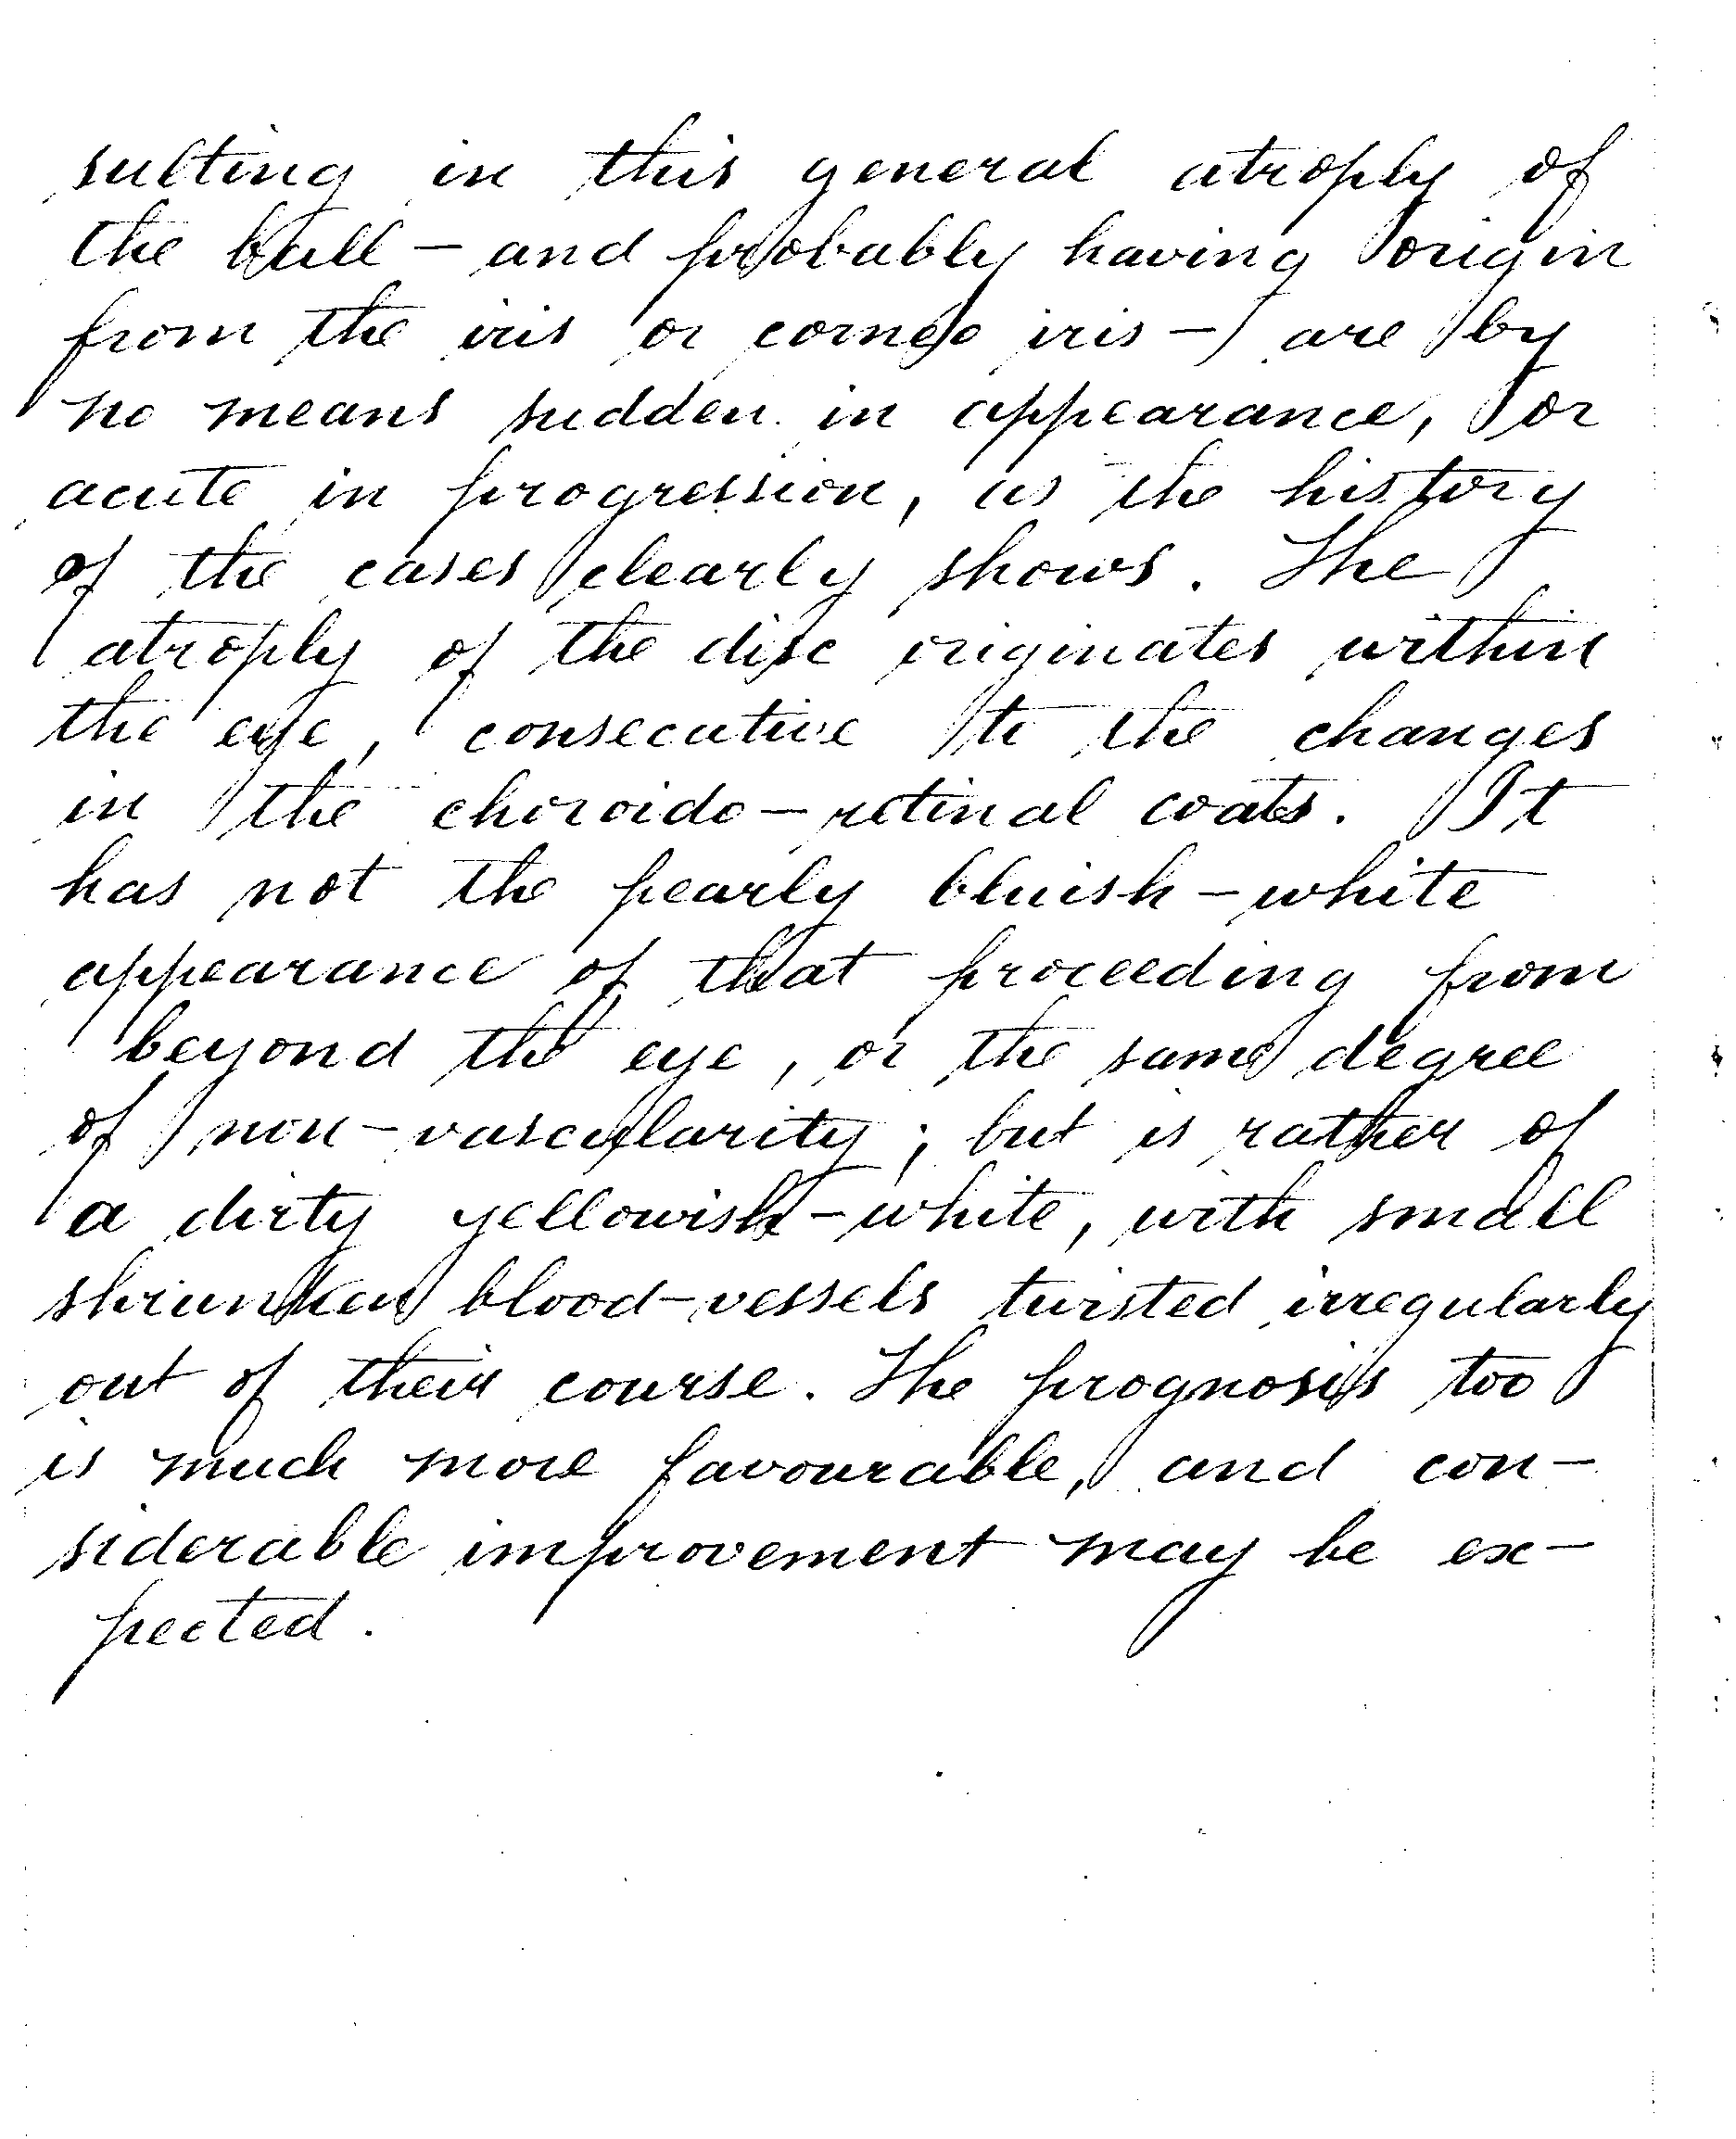 sulting in this general atrophy of
the ball - and probably having origin
from the iris or corneo iris - are by
no means sudden in appearance, or
acute in progression, as the history
of the cases clearly shows. The
atrophy of the disc originates within
the eye, consecutive to the changes
in the choroido-retinal coats. It
has not the pearly bluish-white
appearance of that proceeding from
beyond the eye, or the same degree
of non-vascularity; but is rather of
a dirty yellowish-white, with small
shrunken blood-vessels twisted irregularly
out of their course. The prognosis too
is much more favourable, and con-
siderable improvement may be ex-
pected.